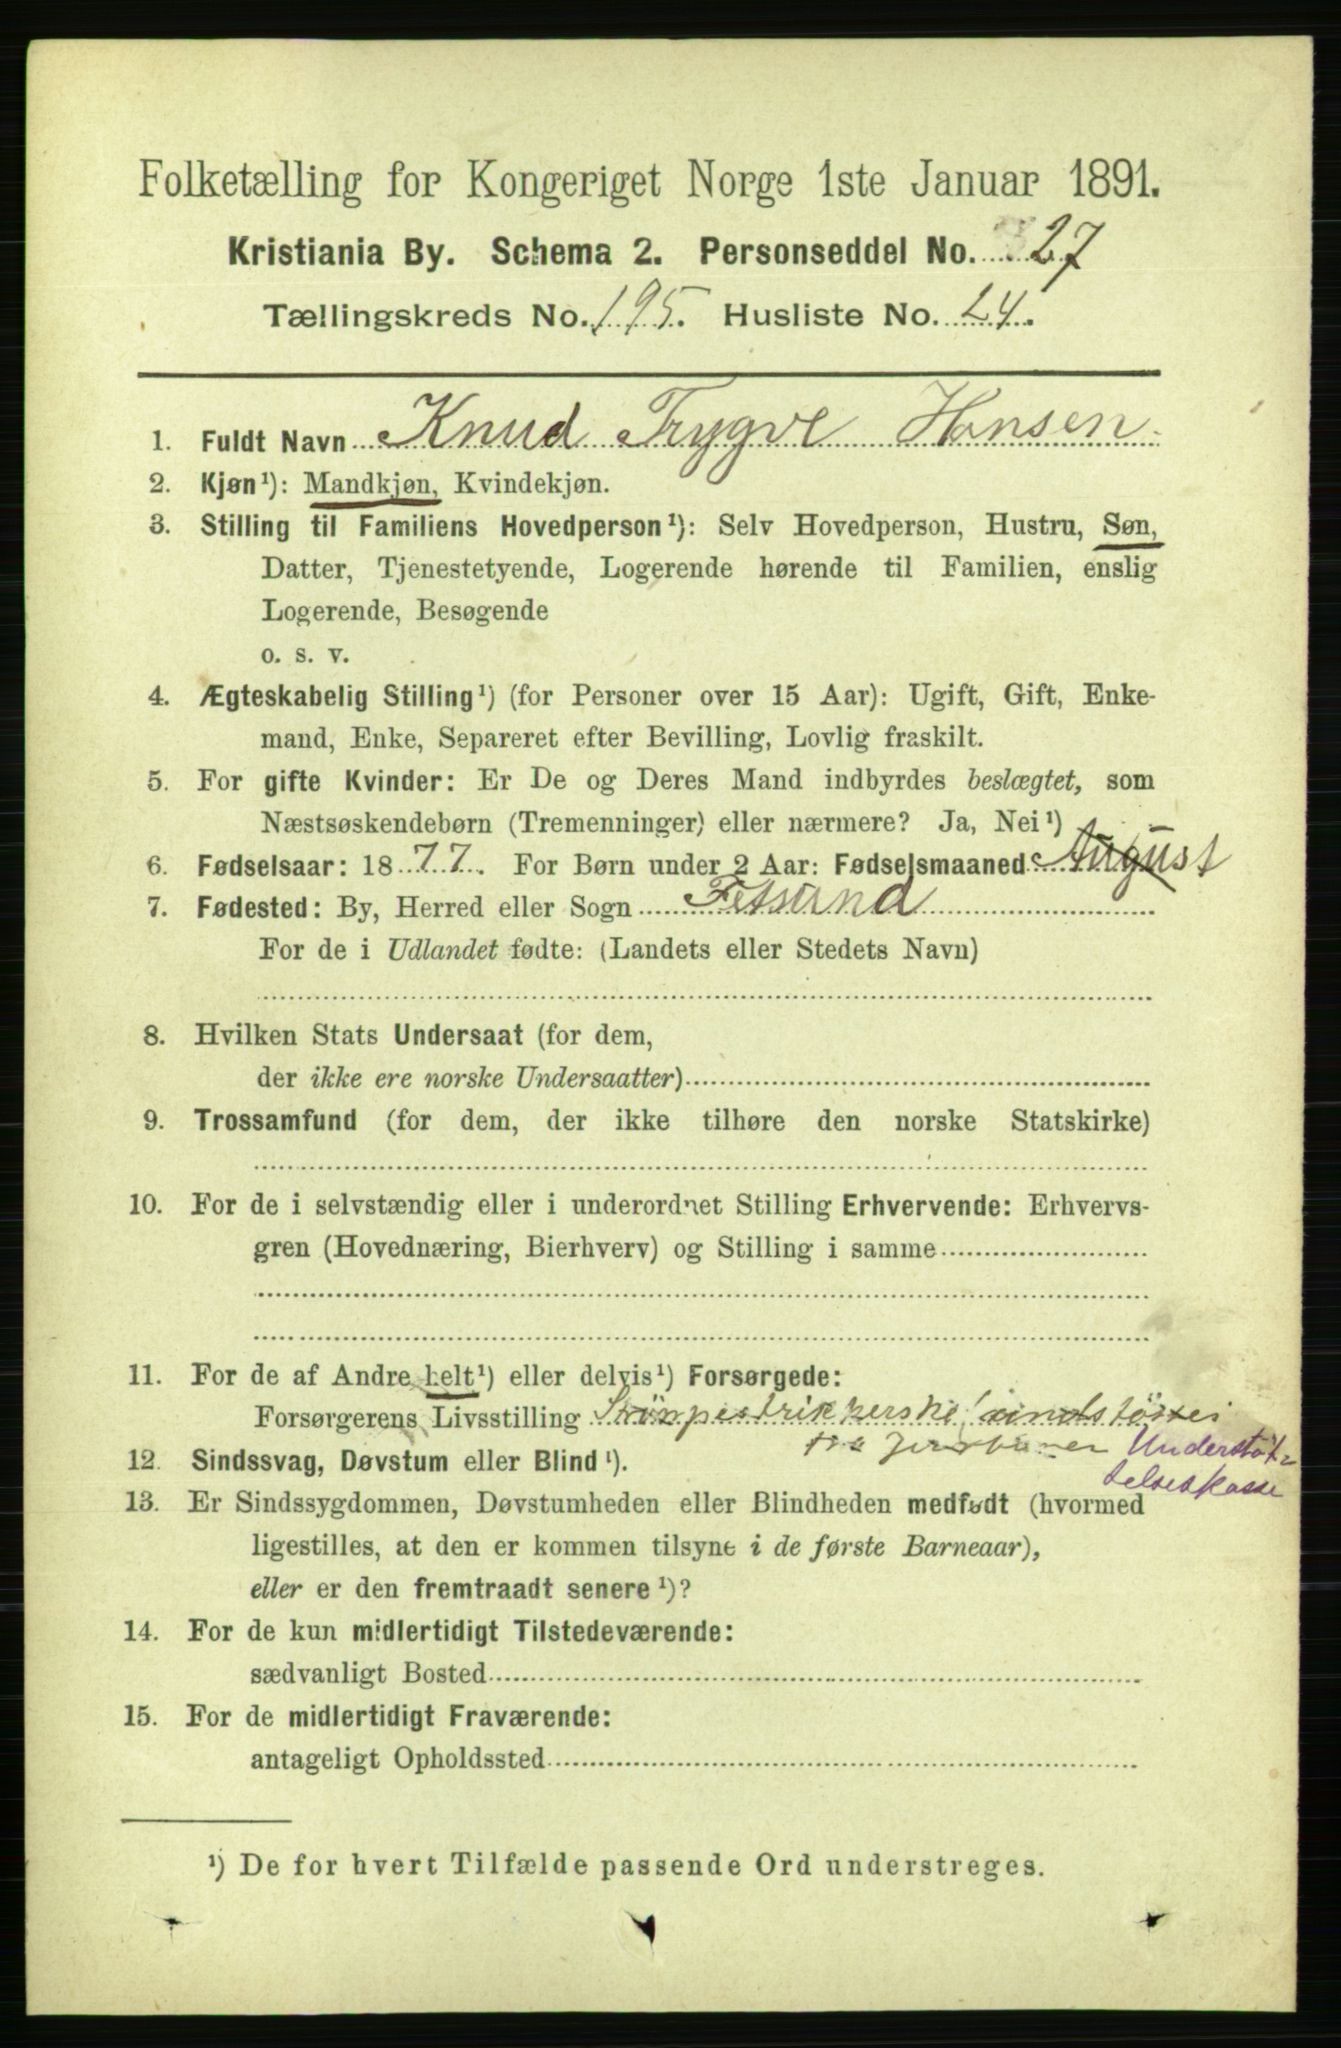 Folketælling for Kongeriget Norge 1ste Januar 1891.
Kristiania By. Schema 2. Personseddel No. 27
Tællingskreds No. 195. Husliste No. 24.
1. Fuldt Navn Knud Trygve Hansen
2. Kjøn¹): Mandkjøn, Kvindekjøn.
3. Stilling til Familiens Hovedperson¹): Selv Hovedperson, Hustru, Søn,
Datter, Tjenestetyende, Logerende hørende til Familien, enslig
Logerende, Besøgende
o. s. v.
4. Ægteskabelig Stilling¹) (for Personer over 15 Aar): Ugift, Gift, Enke-
mand, Enke, Separeret efter Bevilling, Lovlig fraskilt.
5. For gifte Kvinder: Er De og Deres Mand indbyrdes beslægtet, som
Næstsøskendebørn (Tremenninger) eller nærmere? Ja, Nei¹)
6. Fødselsaar: 1877. For Børn under 2 Aar: Fødselsmaaned August
7. Fødested: By, Herred eller Sogn Fetsund
For de i Udlandet fødte: (Landets eller Stedets Navn)
8. Hvilken Stats Undersaat (for dem,
der ikke ere norske Undersaatter)
9. Trossamfund (for dem, der ikke tilhøre den norske Statskirke)
10. For de i selvstændig eller i underordnet Stilling Erhvervende: Erhvervs-
gren (Hovednæring, Bierhverv) og Stilling i samme
11. For de af Andre helt¹) eller delvis¹) Forsørgede:
Forsørgerens Livsstilling Strömpestrikkerske
Understöt-
telseskasse
12. Sindssvag, Døvstum eller Blind¹).
13. Er Sindssygdommen, Døvstumheden eller Blindheden medfødt (hvormed
ligestilles, at den er kommen tilsyne i de første Barneaar),
eller er den fremtraadt senere¹)?
14. For de kun midlertidigt Tilstedeværende:
sædvanligt Bosted
15. For de midlertidigt Fraværende:
antageligt Opholdssted
¹) De for hvert Tilfælde passende Ord understreges.